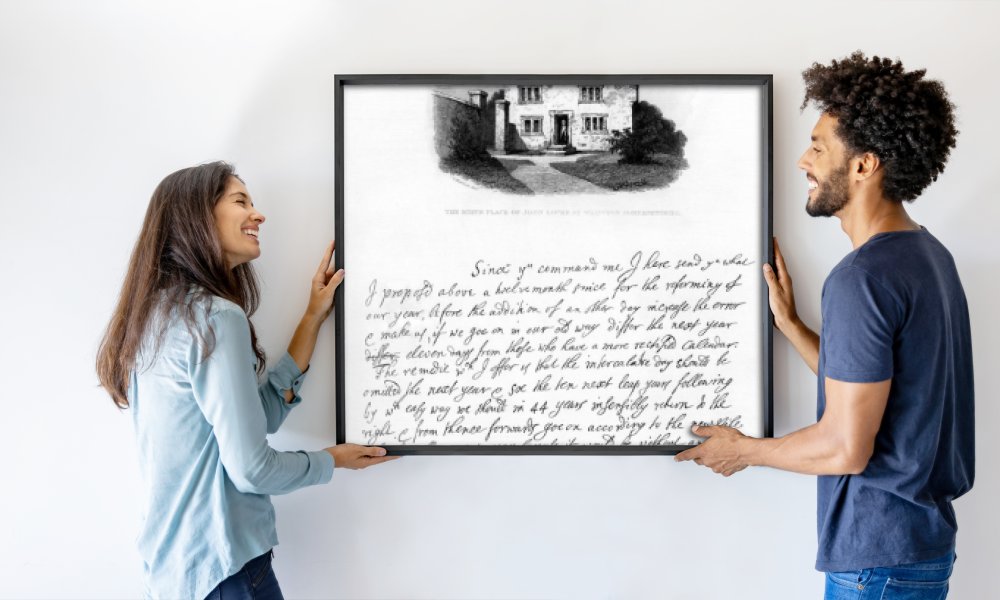 THE BIRTH PLACE OF JOHN LOCKE AT WRINGTON SOMERSETSHIRE.
Since yᵘ command me I here send yᵘ what
I propos'd above a twelvemonth since for the reforming of
our year, before the addition of an other day increase the error
& make us, if we goe on in our old way differ the next year
differ eleven days from those who have a more rectified Calendar.
The remedie wᶜʰ I offer is that the intercalare day should be
omitted the next year & soe the ten next leap years following
by wᶜʰ easy way we should in 44 years insensibly return to the
right & from thence forwards goe on according to the new stile